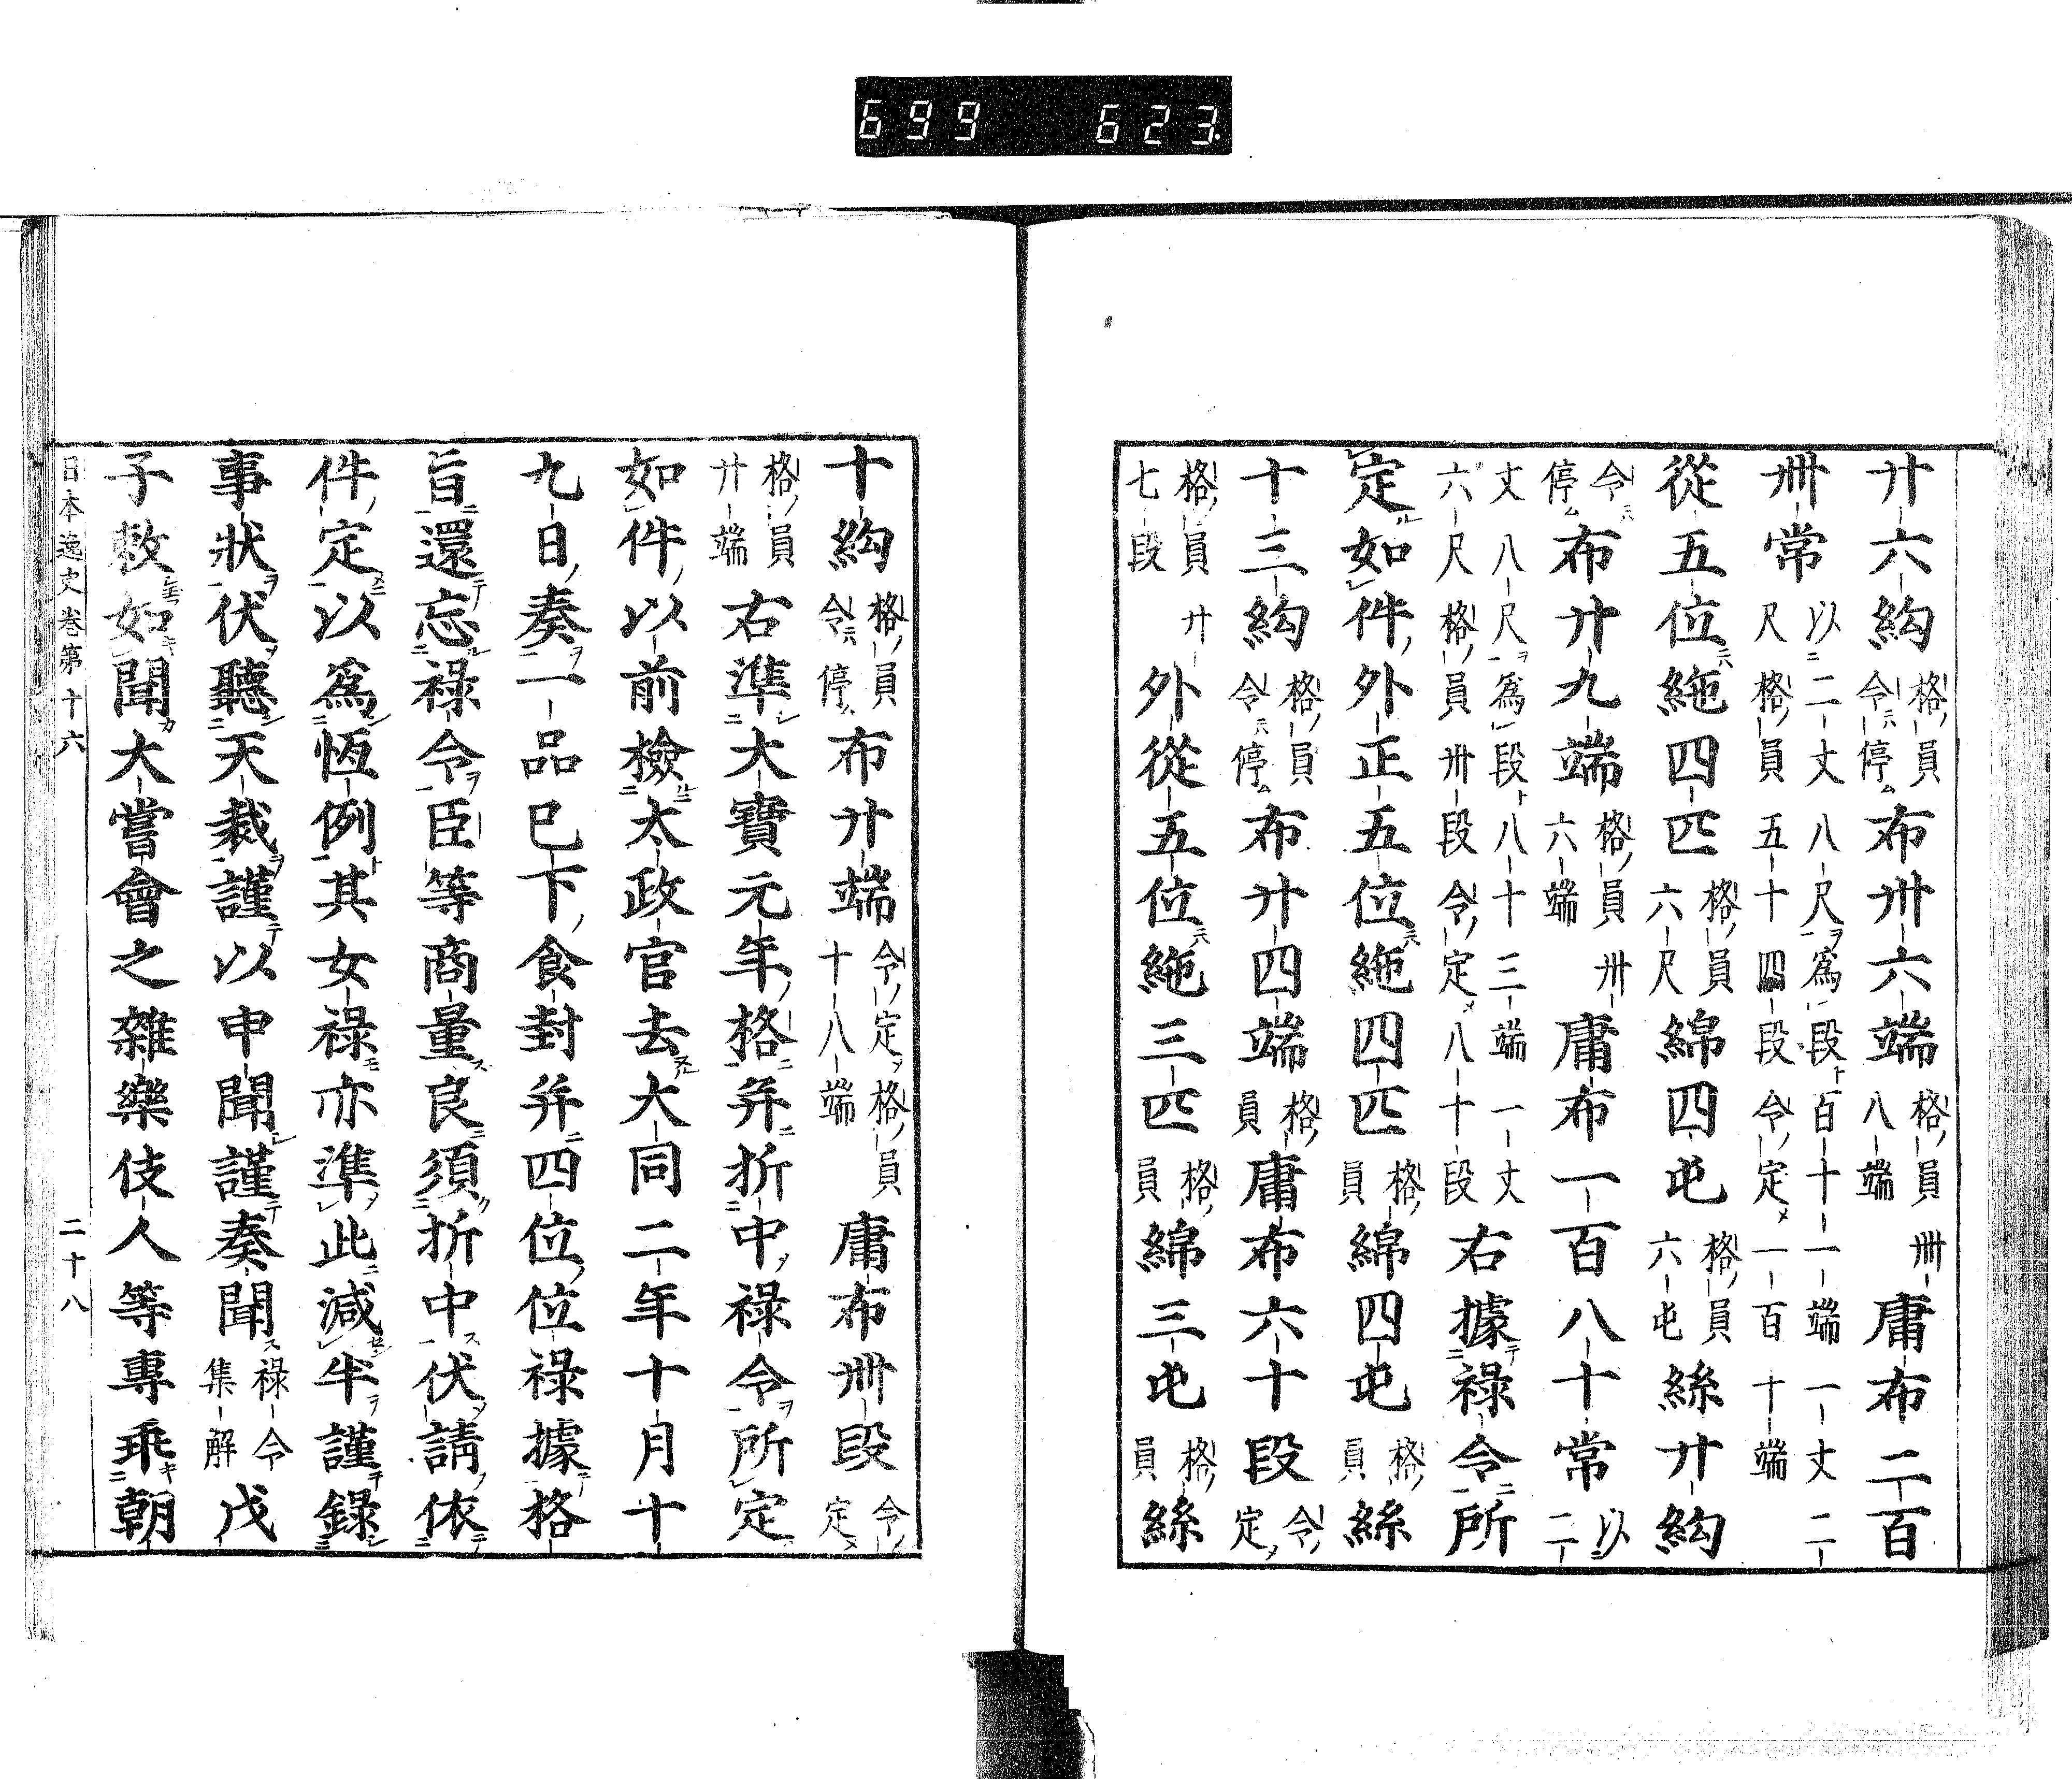 699 623
廾六絇格員令云停布卅六端格員卌八端庸布二百
卌常以二丈八尺爲段百十一端一丈二尺格員五十四段令定一百十端
從五位云絁四匹格員六尺綿四屯格員六屯絲廾絇
令云停布廾九端格員卅六端庸布一百八十常以二
丈八尺爲段八十三端一丈六尺格員卅段令定八十段右據祿令所
定如件外正五位云絁四匹格員綿四屯格員絲
十三絇格員令云停布廾四端格員庸布六十段令定
格員廾七段外從五位云絁三匹格員綿三屯格員絲
十絇格員令云停布廾端令定格員十八端庸布卌段令定
格員廾端右準大寶元年格并折中祿令所定
如件以前檢太政官去大同二年十月十
九日奏二品已下食封并四位位祿據格
旨還忘祿令臣等商量良須折中伏請依
件定以爲恆例其女祿亦準此減半謹錄
事狀伏聽天裁謹以申聞謹奏聞祿令集解戊
子敕如聞大嘗會之雜樂伎人等專乖朝
日本逸史卷第十六 二十八